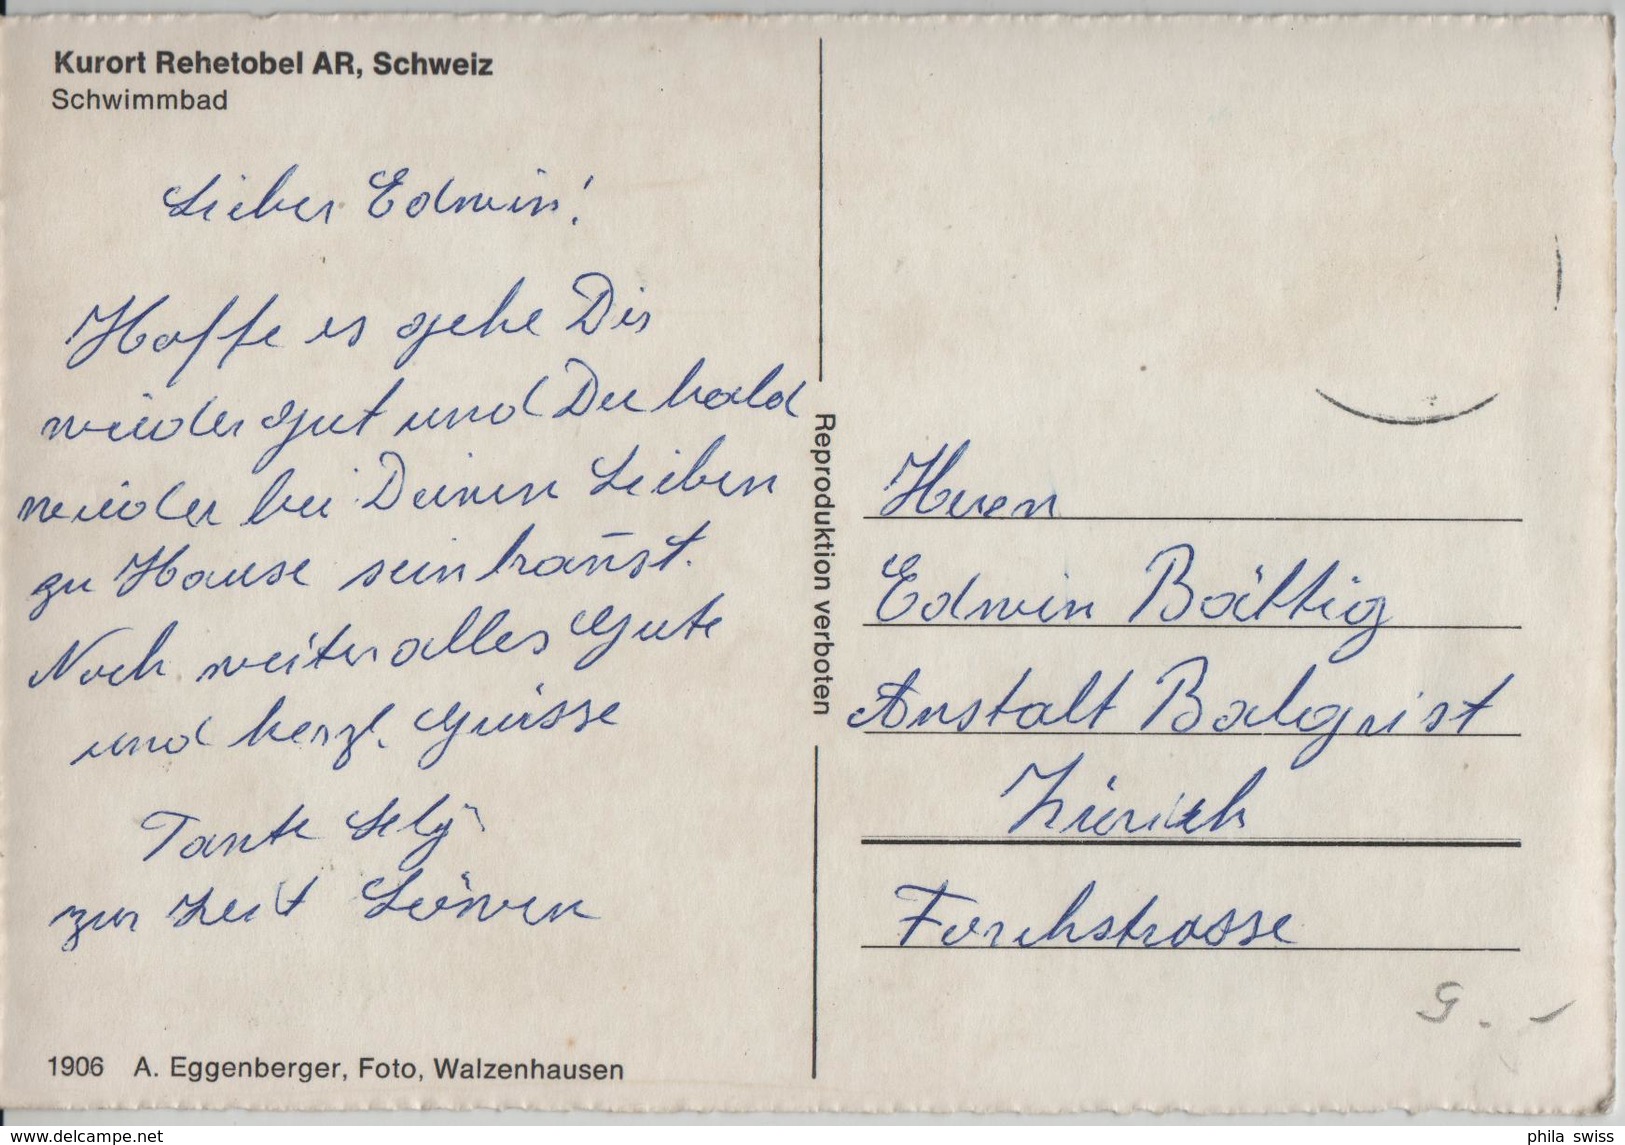 Kurort Rehetobel AR, Schweiz
Schwimmbad
Lieber Edwin!
Hoffe es gehe Dir
wieder gut und Du bald
wieder bei Deinen Lieben
zu Hause sein kan̄st.
Noch weiter alles Gute
und herzl. Grüsse
Tante Sely
zur Zeit Löwen
1906 A. Eggenberger, Foto, Walzenhausen
Reproduktion verboten
Herrn
Edwin Bättig
Anstalt Balgrist
Zürich
Forchstrasse
9.-
www.delcampe.net
phila_swiss